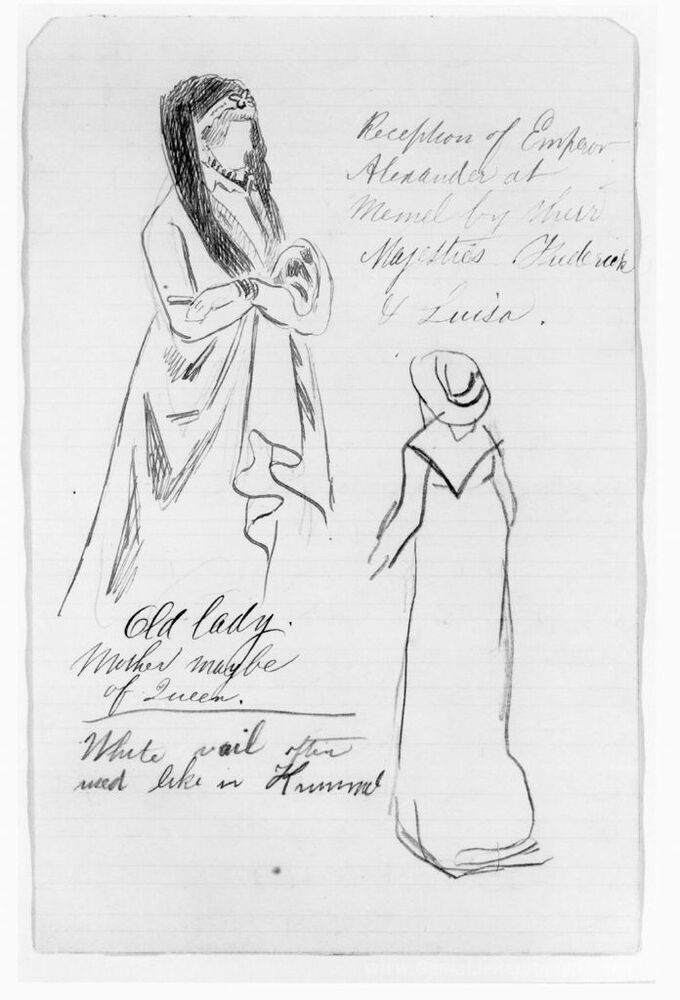 Reception of Emperor
Alexander at
Memel by their
Majesties Frederick
& Luisa.
Old lady.
Mother maybe
of Queen.
White vail often
used like in